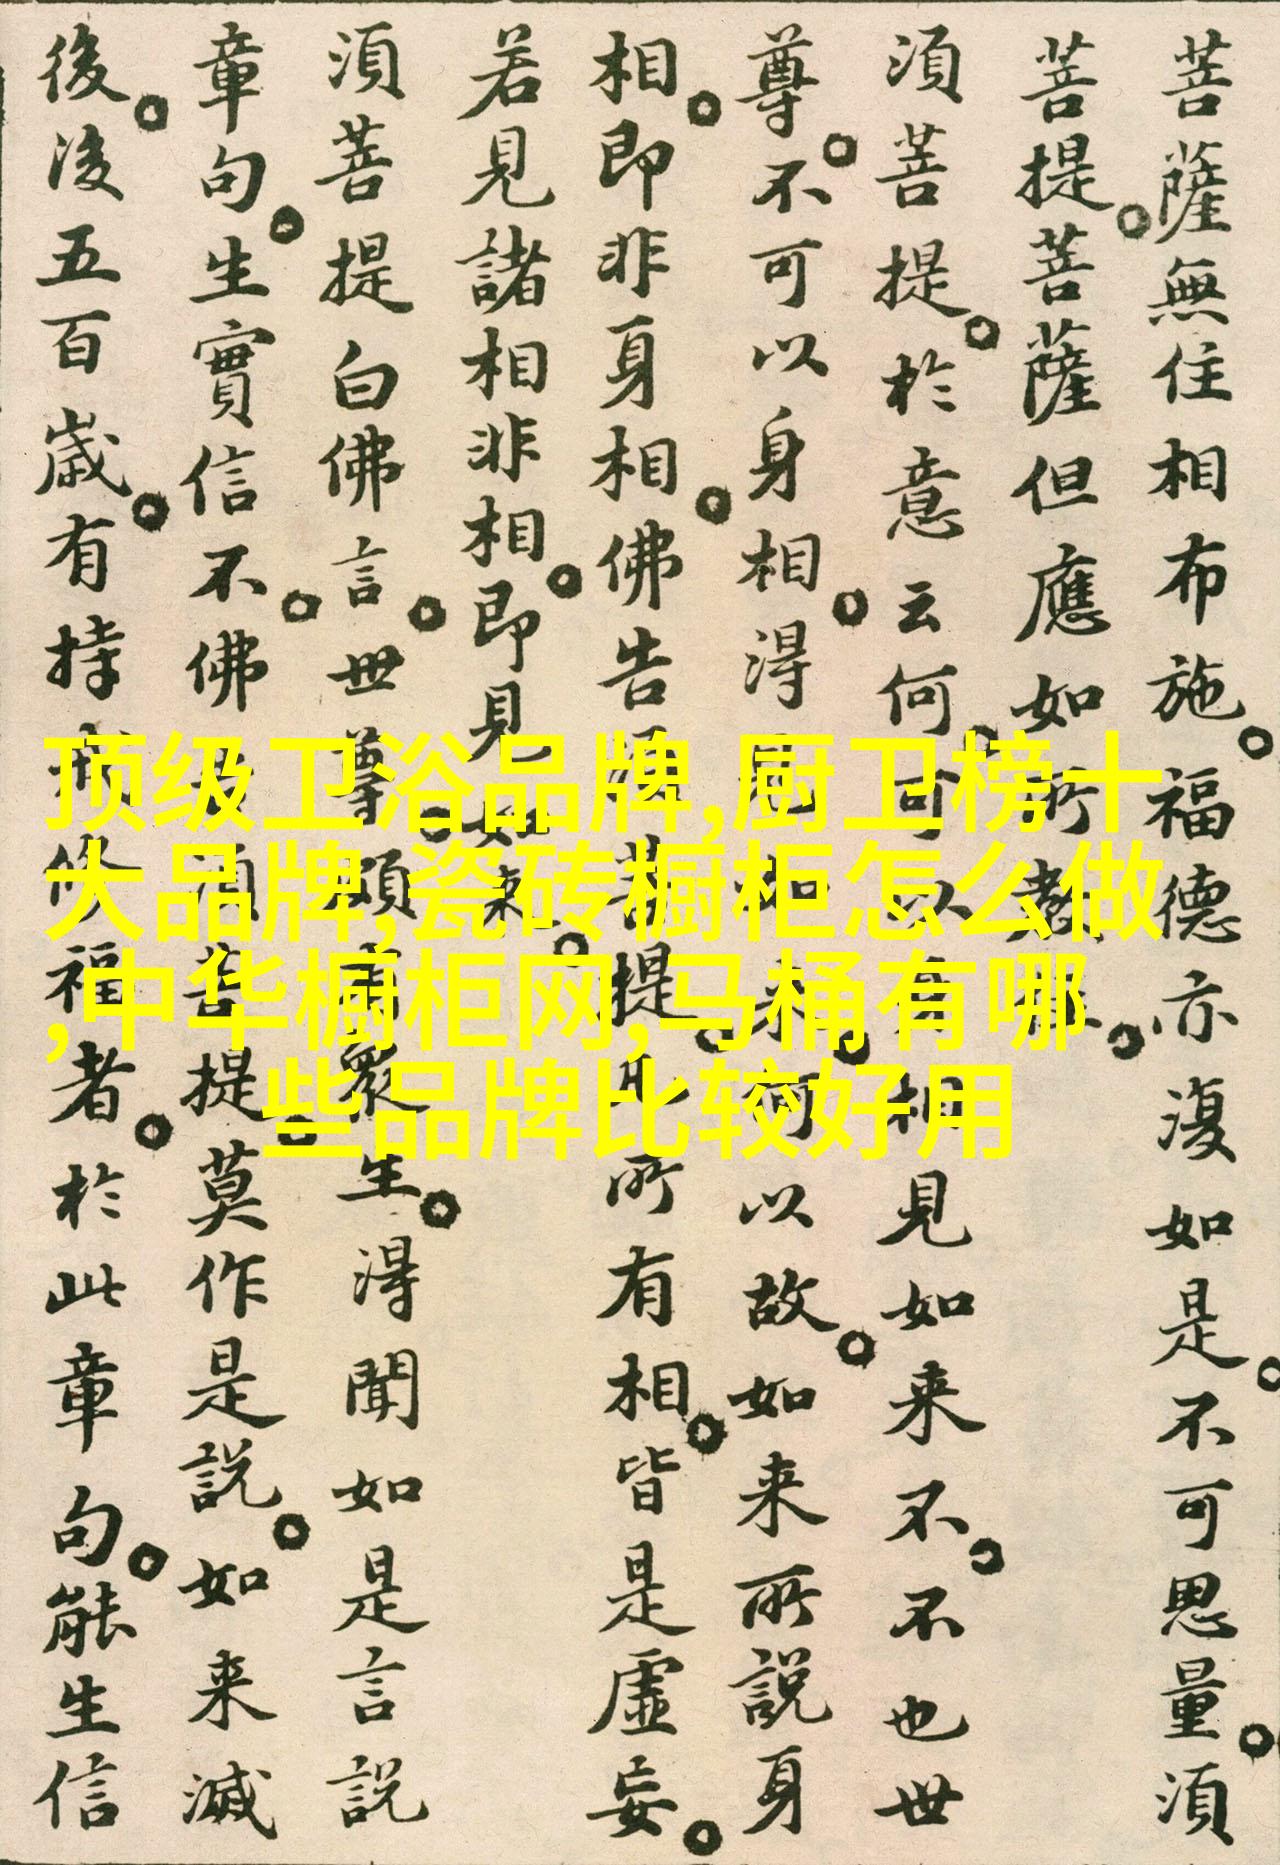 菩薩無住相布施。福德亦復如是。不可思量。須
菩提。菩薩但應如所教住。
須菩提。於意云何。可以身相見如来不。不也世
尊。不可以身相。得見如来。何以故。如来所說身
相。即非身相。佛告須菩提。凡所有相。皆是虛妄。
若見諸相非相。即見如来。
須菩提白佛言。世尊。頗有眾生。得聞如是言說
章句。生實信不。佛告須菩提。莫作是說。如来滅
後。後五百歲。有持戒修福者。於此章句。能生信
顶级卫浴品牌,厨卫榜十
大品牌,瓷砖橱柜怎么做
,中华橱柜网,马桶有哪
些品牌比较好用